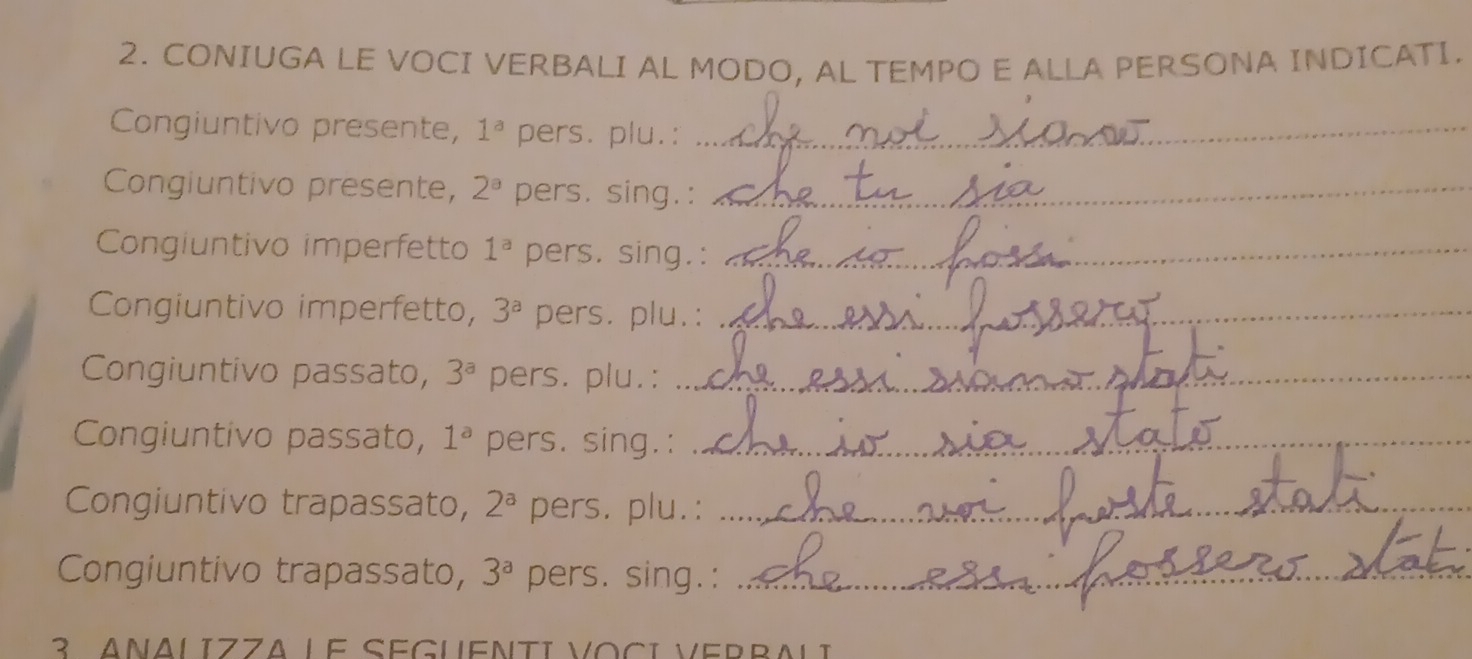 2. CONIUGA LE VOCI VERBALI AL MODO, AL TEMPO E ALLA PERSONA INDICATI.
Congiuntivo presente, 1ª pers. plu.: che noi siamo
Congiuntivo presente, 2ª pers. sing.: che tu sia
Congiuntivo imperfetto 1ª pers. sing.: che io fossi
Congiuntivo imperfetto, 3ª pers. plu.: che essi fossero
Congiuntivo passato, 3ª pers. plu.: che essi siano stati
Congiuntivo passato, 1ª pers. sing.: che io sia stato
Congiuntivo trapassato, 2ª pers. plu.: che voi foste stati
Congiuntivo trapassato, 3ª pers. sing.: che essi fossero stati
3. ANALIZZA LE SEGUENTI VOCI VERBALI